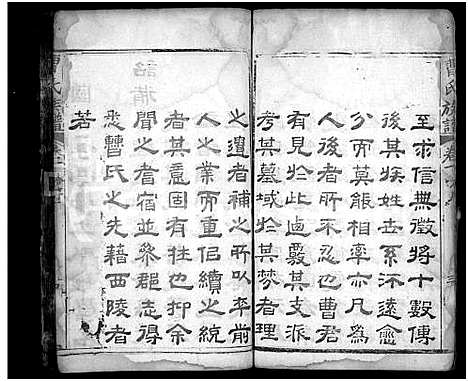 曹氏族譜
至求信無徵將十數傳
後其族姓世系遠愈
分而莫能相率亦凡為
人後者所不忍也曹君
有見於此遍覈其支派
考其墓域於其夢者理
之遺者補之所以率前
人之業而重侶續之統
者其意固有牲也抑余
聞之耆宿並參郡志得
悉曹氏之先藉西陵者
若